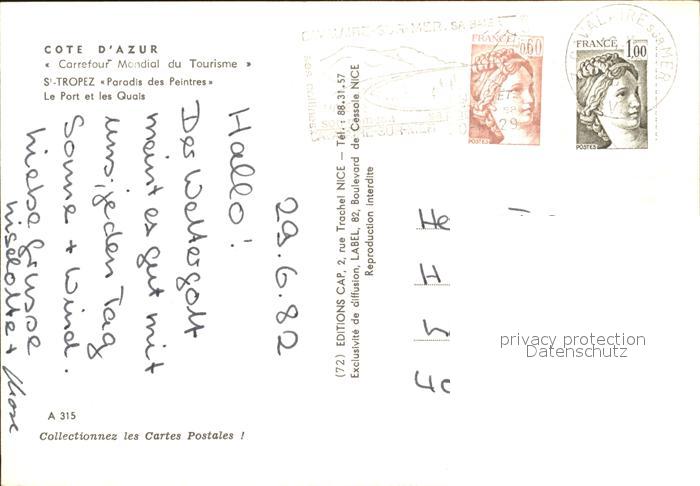 COTE D'AZUR
« Carrefour Mondial du Tourisme »
St-TROPEZ «Paradis des Peintres»
Le Port et les Quais
29.6.82
Hallo!
Der Wettergott
meint es gut mit
uns, jeden Tag
Sonne + Wind.
Liebe Grüsse
Liselotte +
A 315
Collectionnez les Cartes Postales !
(72) EDITIONS CAP, 2, rue Trachel NICE — Tél. : 88.31.57
Exclusivité de diffusion, LABEL, 82, Boulevard de Cessole NICE
Reproduction interdite
CAVALAIRE-SUR-MER, SA BAIE
FRANCE 0,60
POSTES
FRANCE 1,00
POSTES
CAVALAIRE SUR MER
29
He
H
privacy protection
Datenschutz